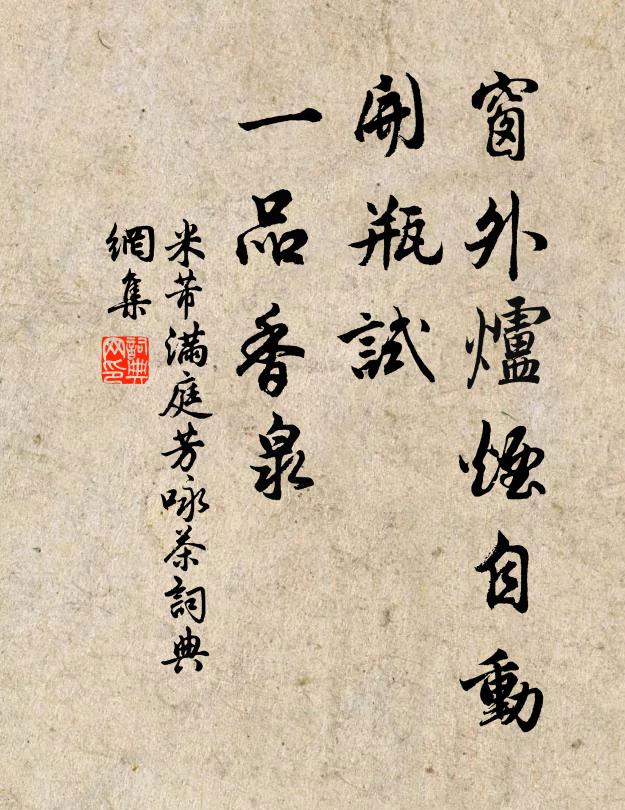 窗外爐煙自動
開瓶試
一品香泉
米芾滿庭芳咏茶詞典
網集
詞典網印